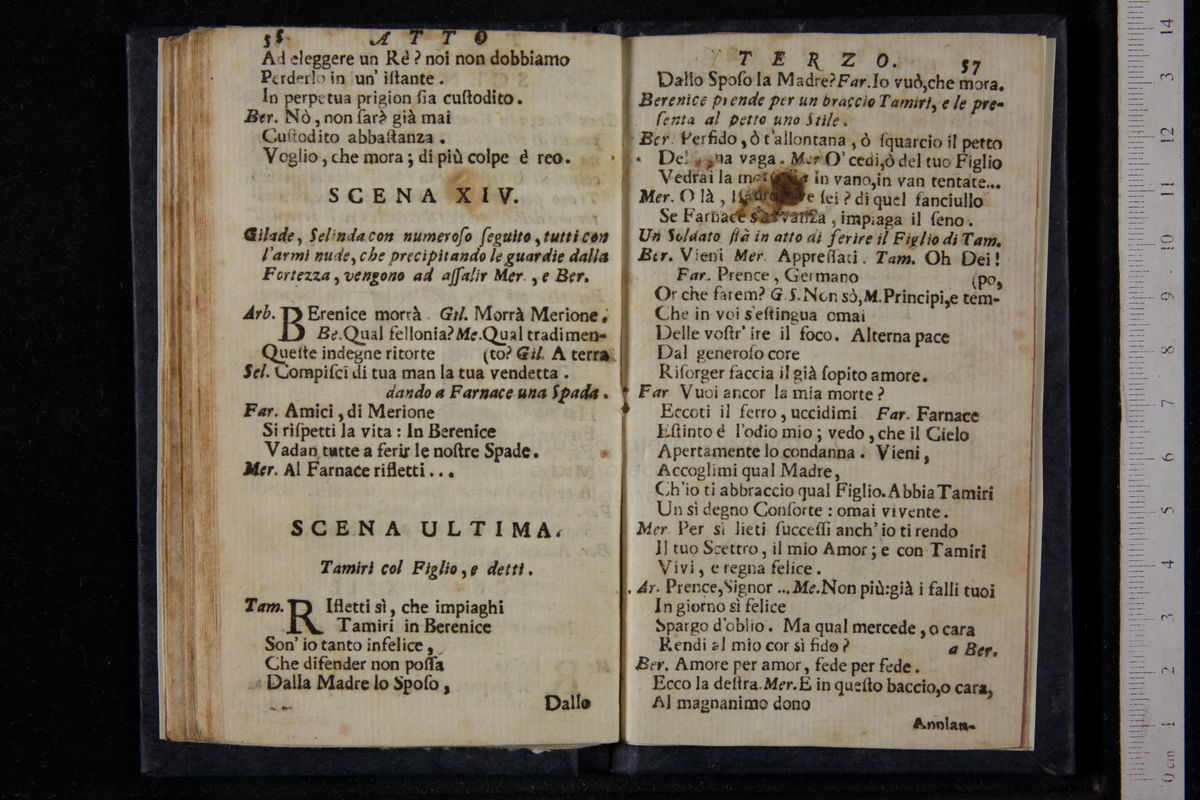 56 ATTO
Ad eleggere un Rè? noi non dobbiamo
Perderlo in un' iſtante.
In perpetua prigion ſia cuſtodito.
Ber. Nò, non ſarà già mai
Cuſtodito abbaſtanza.
Voglio, che mora; di più colpe è reo.
SCENA XIV.
Gilade, Selinda con numeroſo ſeguito, tutti con
l'armi nude, che precipitando le guardie dalla
Fortezza, vengono ad aſſalir Mer., e Ber.
Arb. BErenice morrà. Gil. Morrà Merione.
Be. Qual fellonia? Me. Qual tradimen-
Queſte indegne ritorte (to? Gil. A terra
Sel. Compiſci di tua man la tua vendetta.
dando a Farnace una Spada.
Far. Amici, di Merione
Si riſpetti la vita: In Berenice
Vadan tutte a ferir le noſtre Spade.
Mer. Al Farnace rifletti...
SCENA ULTIMA.
Tamiri col Figlio, e detti.
Tam. RIfletti sì, che impiaghi
Tamiri in Berenice
Son' io tanto infelice,
Che difender non poſſa
Dalla Madre lo Spoſo,
Dallo
TERZO. 57
Dallo Spoſo la Madre? Far. Io vuò, che mora.
Berenice prende per un braccio Tamiri, e le pre-
ſenta al petto uno Stile.
Ber. Perfido, ò t'allontana, ò ſquarcio il petto
vaga. Mer O' cedi, ò del tuo Figlio
Vedrai la in vano, in van tentate...
Mer. O là, ſei? di quel fanciullo
Se Farnace s'avvanza, impiaga il ſeno.
Un Soldato ſtà in atto di ferire il Figlio di Tam.
Ber. Vieni Mer. Appreſſati. Tam. Oh Dei!
Far. Prence, Germano (po,
Or che farem? G.S. Non sò, M. Principi, e tem-
Che in voi s'eſtingua omai
Delle voſtr' ire il foco. Alterna pace
Dal generoſo core
Riſorger faccia il già ſopito amore.
Far Vuoi ancor la mia morte?
Eccoti il ferro, uccidimi Far. Farnace
Eſtinto è l'odio mio; vedo, che il Cielo
Apertamente lo condanna. Vieni,
Accoglimi qual Madre,
Ch'io ti abbraccio qual Figlio. Abbia Tamiri
Un sì degno Conſorte: omai vivente.
Mer Per sì lieti ſucceſſi anch' io ti rendo
Il tuo Scettro, il mio Amor; e con Tamiri
Vivi, e regna felice.
Ar. Prence, Signor... Me. Non più: già i falli tuoi
In giorno sì felice
Spargo d'oblio. Ma qual mercede, o cara
Rendi al mio cor sì fido? a Ber.
Ber. Amore per amor, fede per fede.
Ecco la deſtra. Mer. E in queſto baccio, o cara,
Al magnanimo dono
Annlan-
0 cm 1 2 3 4 5 6 7 8 9 10 11 12 13 14